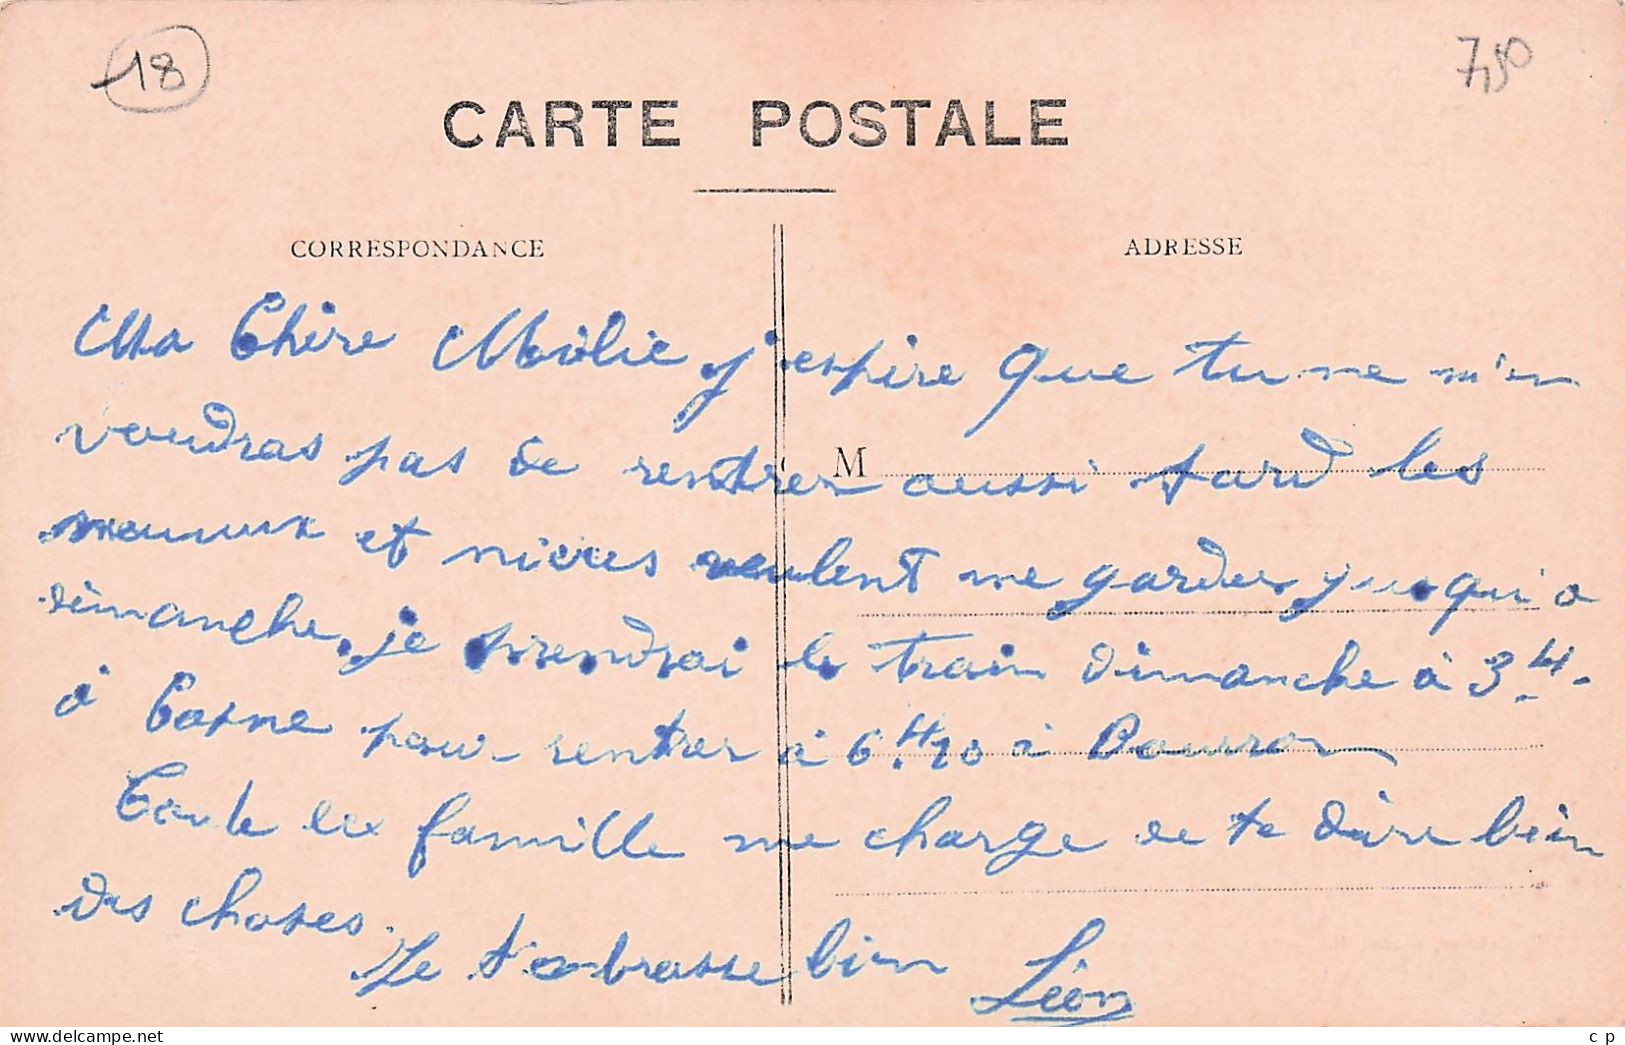 18
7,50
CARTE POSTALE
CORRESPONDANCE
ADRESSE
Ma Chère Mélie j'espère que tu ne m'en
voudras pas de rentrer aussi tard les
neveux et nièces veulent me garder jusqu'à
dimanche. je prendrai le train dimanche à 3H.
à Cosne pour rentrer à 6H20 à Bourron
Toute la famille me charge de te dire bien
des choses.
Je t'embrasse bien Léon
M
c p